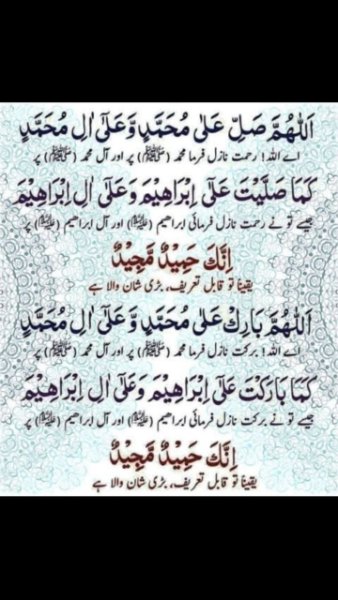 اَللّٰهُمَّ صَلِّ عَلٰی مُحَمَّدٍ وَّعَلٰٓی اٰلِ مُحَمَّدٍ
اے اللہ! رحمت نازل فرما محمد (ﷺ) پر اور آل محمد (ﷺ) پر
كَمَا صَلَّيْتَ عَلٰٓی اِبْرَاهِيْمَ وَعَلٰٓی اٰلِ اِبْرَاهِيْمَ
جیسے تو نے رحمت نازل فرمائی ابراھیم (علیہ السلام) اور آل ابراھیم (علیہ السلام) پر
اِنَّكَ حَمِيْدٌ مَّجِيْدٌ
یقینا تو قابل تعریف، بڑی شان والا ہے
اَللّٰهُمَّ بَارِكْ عَلٰی مُحَمَّدٍ وَّ عَلٰٓی اٰلِ مُحَمَّدٍ
اے اللہ! برکت نازل فرما محمد (ﷺ) پر اور آل محمد (ﷺ) پر
كَمَا بَارَكْتَ عَلٰٓی اِبْرَاهِيْمَ وَعَلٰٓی اٰلِ اِبْرَاهِيْمَ
جیسے تو نے برکت نازل فرمائی ابراھیم (علیہ السلام) اور آل ابراھیم (علیہ السلام) پر
اِنَّكَ حَمِيْدٌ مَّجِيْدٌ
یقینا تو قابل تعریف، بڑی شان والا ہے